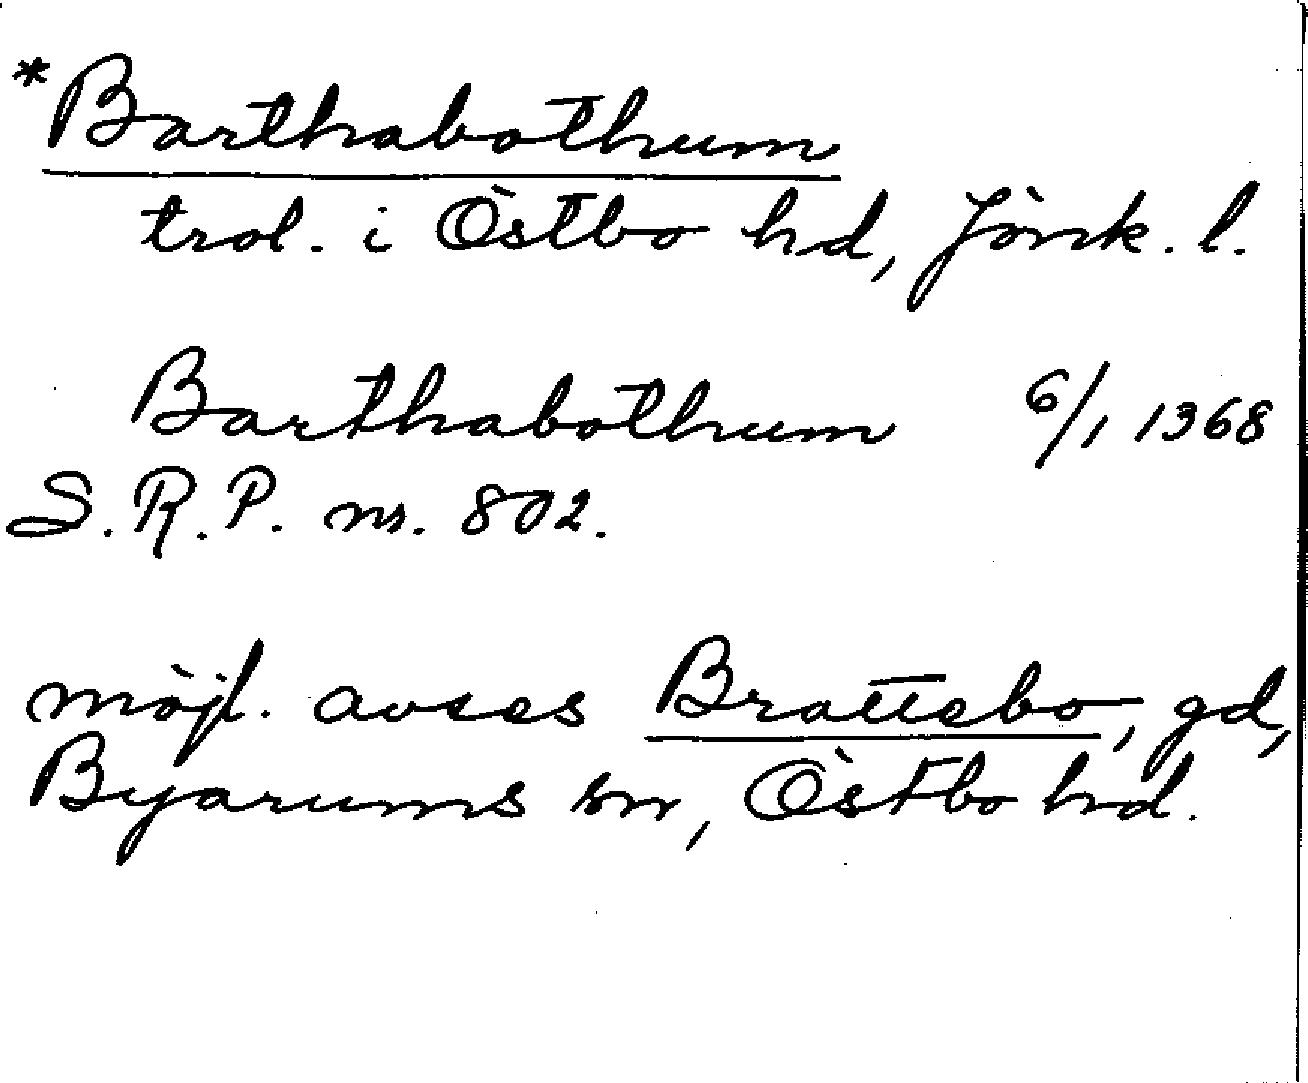 *Barthabothum
trol. i Östbo hd, Jönk. l.
Barthabothum 6/1 1368
S.R.P. nr. 802.
möjl. avses Brattebo, gd,
Byarums sn, Östbo hd.